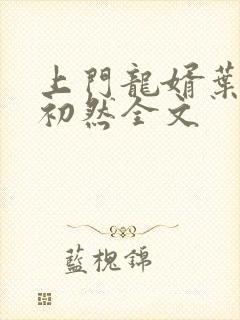 上門龍婿葉
初然全文
藍槐錦